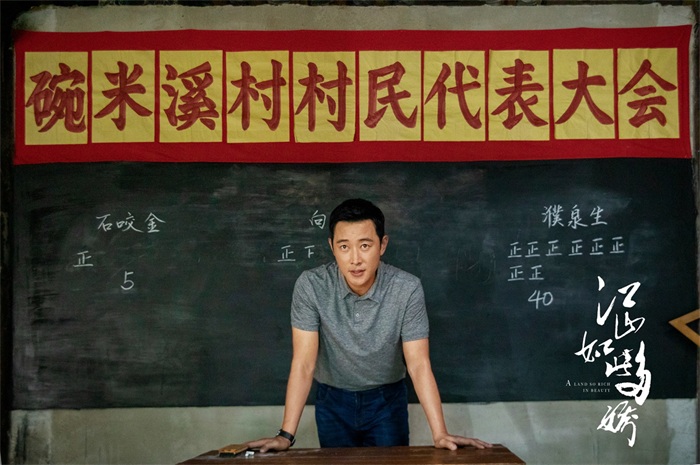 碗米溪村村民代表大会
石咬金
正
5
向
正下
濮泉生
正正正正正正
正正
40
江山如此多娇
A LAND SO RICH
IN BEAUTY